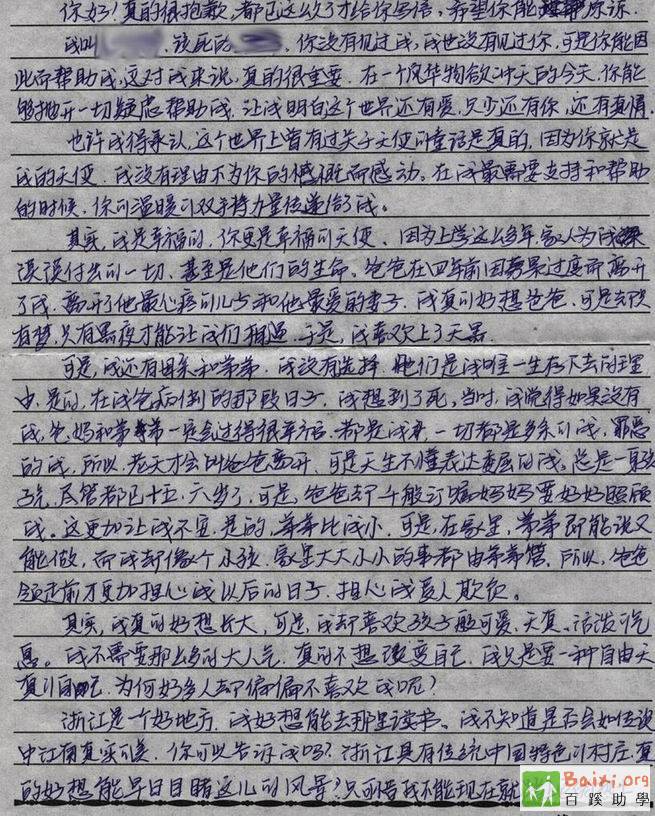 你好！真的很抱歉，都已这么久了才给你写信，希望你能原谅.
我叫 该死的 ，你没有见过我，我也没有见过你，可是你能因
此而帮助我，这对我来说，真的很重要. 在一个风华物欲冲天的今天，你能
够抛开一切疑虑帮助我，让我明白这个世界还有爱，只少还有你，还有真情.
也许我得承认，这个世界上曾有过关于天使的童话是真的，因为你就是
我的天使. 我没有理由不为你的慷慨而感动. 在我最需要支持和帮助
的时候，你的温暖的双手将力量传递给了我.
其实，我是幸福的，你更是幸福的天使. 因为上学这么多年，家人为我
误付出的一切，甚至是他们的生命. 爸爸在四年前因劳累过度而离开
了我，离开了他最心疼的儿子和他最爱的妻子. 我真的好想爸爸，可是去只
有梦，只有黑夜才能让我们相遇. 于是，我喜欢上了天黑.
可是，我还有母亲和弟弟. 我没有选择. 他们是我唯一生存下去的理
由. 是的，在我爸病倒的那段日子，我想到了死，当时，我觉得如果没有
我，爸，妈和弟弟一定会过得很幸福. 都是我，一切都是多余的我，罪恶
的我，所以，老天才会叫爸爸离开. 可是天生不懂表达委屈的我，总是一身
亮，尽管都已十五、六岁了，可是，爸爸却千般叮嘱妈妈要好好照顾
我. 这更加让我不安. 是的，弟弟比我小. 可是，在家里，弟弟即能说又
能做，而我却像个小孩. 家里大大小小的事都由弟弟管. 所以，爸爸
临走前才更加担心我以后的日子，担心我受人欺负.
其实，我真的好想长大，可是，我却喜欢孩子般可爱、天真、活泼的气
息. 我不需要那么多的大人气. 真的不想改变自己. 我只是要一种自由天
真的自己. 为何好多人却偏偏不喜欢我呢？
浙江是一个好地方. 我好想能去那里读书. 我不知道是否会如传说
中江南真实的美. 你可以告诉我吗？浙江具有传统中国特色的村庄. 真
的好想能早日目睹这儿的风景？只可惜我不能现在就
Baixi.org
百蹊助學